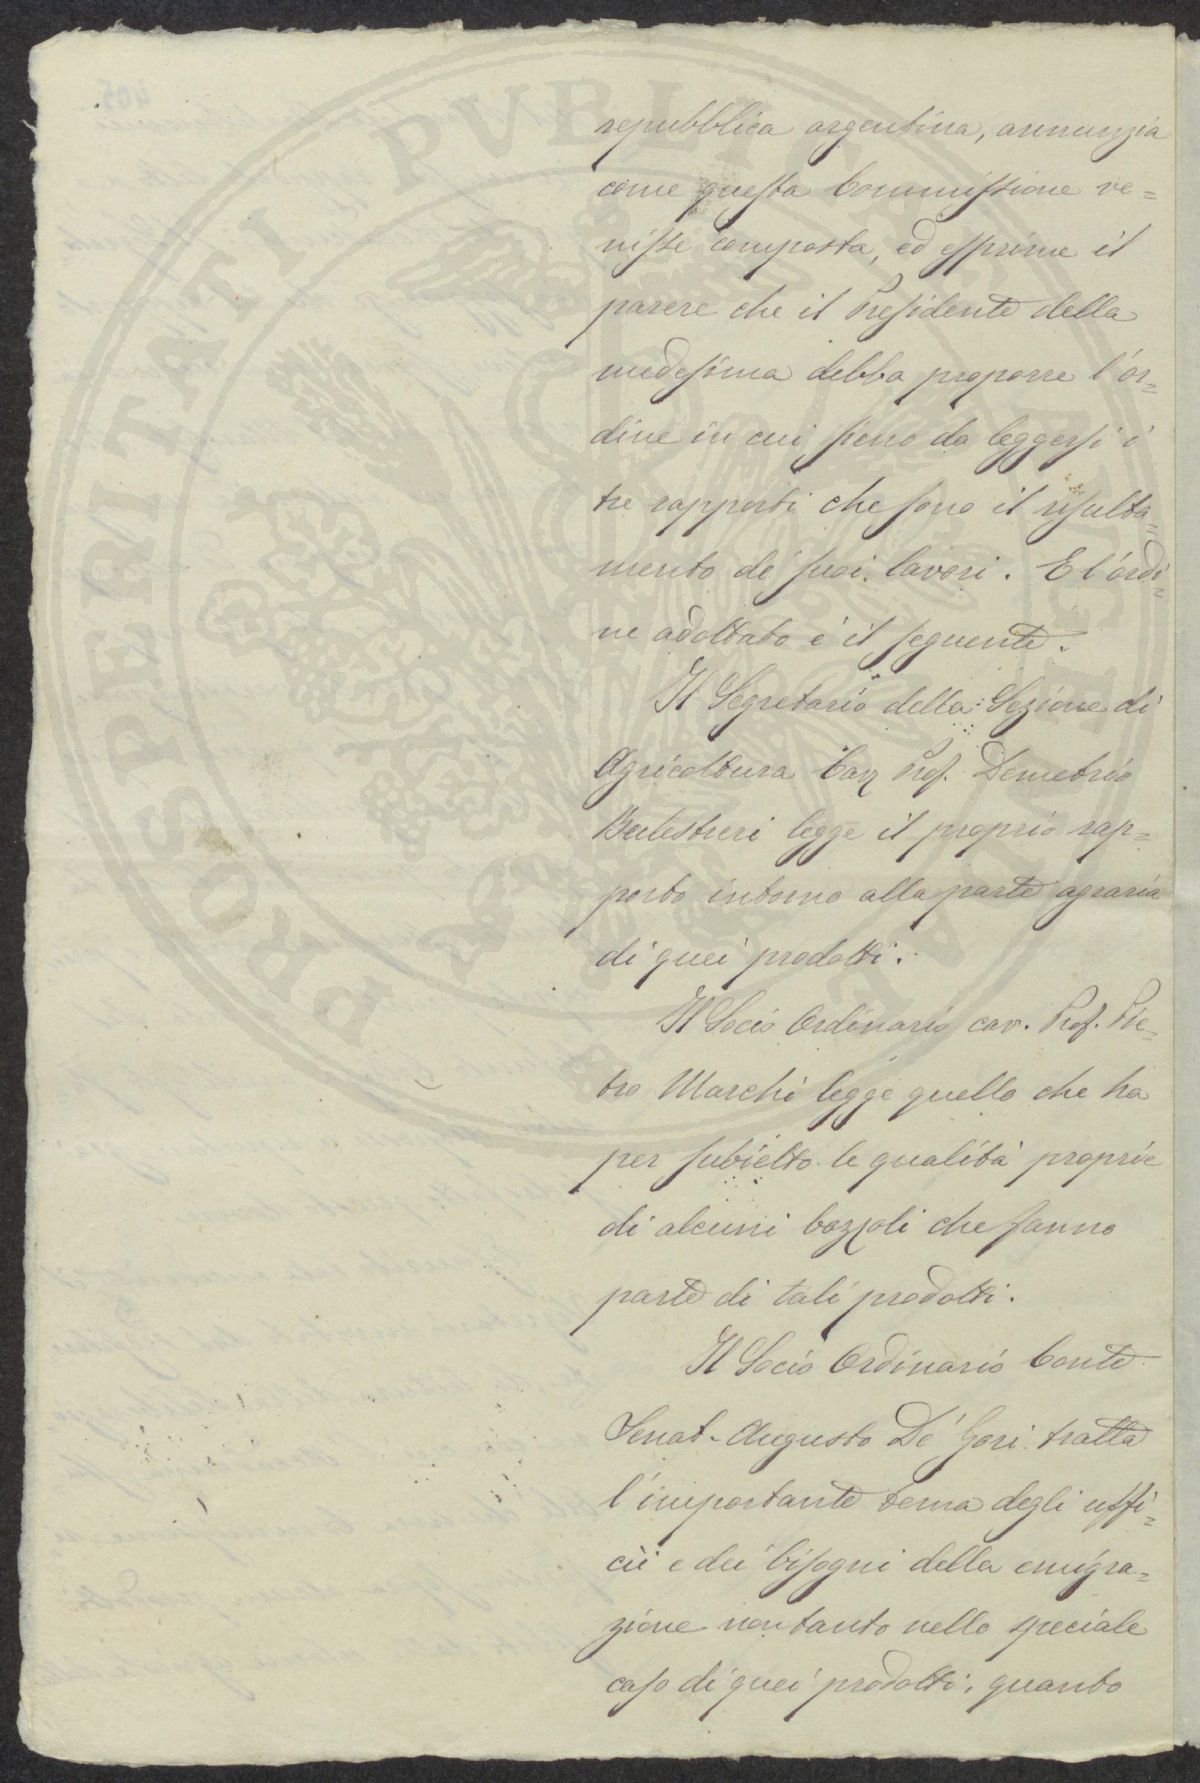 repubblica argentina, annunzia
come questa Commissione ve=
nisse composta, ed esprime il
parere che il Presidente della
medesima debba proporre l'or=
dine in cui sieno da leggersi i
tre rapporti che sono il resulta=
mento de' suoi lavori. E l'ordi=
ne adottato è il seguente.
Il Segretario della Sezione di
Agricoltura Cav Prof. Demetrio
Balestreri legge il proprio rap=
porto intorno alla parte agraria
di quei prodotti.
Il Socio Ordinario cav. Prof. Pie=
tro Marchi legge quello che ha
per subietto le qualità proprie
di alcuni bozzoli che fanno
parte di tali prodotti.
Il Socio Ordinario Conte
Senat. Augusto De' Gori tratta
l'importante tema degli uffi=
cii e dei bisogni della emigra=
zione non tanto nello speciale
caso di quei prodotti, quanto
PROSPERITATI PVBLICAE